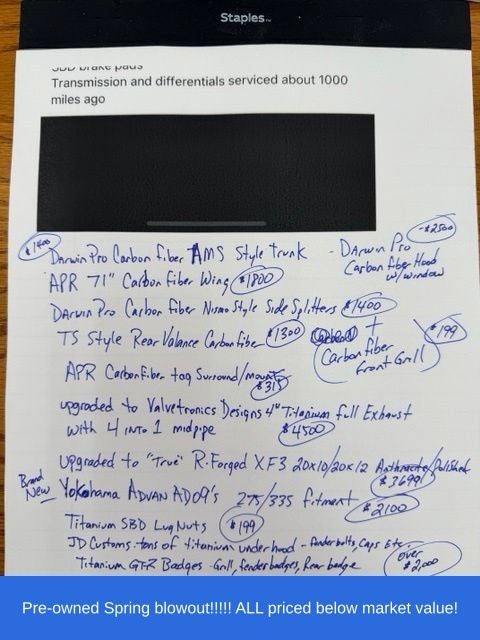 Staples
Transmission and differentials serviced about 1000
miles ago
$1400
Darwin Pro Carbon fiber AMS Style Trunk
- Darwin Pro
Carbon fiber Hood
w/window
~$2500
APR 71" Carbon Fiber Wing $1800
Darwin Pro Carbon Fiber Nismo Style Side Splitters $1400
TS Style Rear Valance Carbon fiber $1300
Carbon fiber
front Grill
$199
APR Carbon Fiber tag Surround/mount
upgraded to Valvetronics Designs 4" Titanium full Exhaust
with 4 into 1 midpipe $4500
upgraded to "True" R-Forged XF3 20x10/20x12 Anthracite/Polished
$3699
Brand
New
Yokohama ADVAN AD09's 275/335 fitment $2100
Titanium SBD Lug Nuts $199
JD Customs-tons of titanium under hood - fender bolts, Caps Etc.
Titanium GT-R Badges - Grill, fender badges, Rear badge
over
$2,000
Pre-owned Spring blowout!!!!! ALL priced below market value!